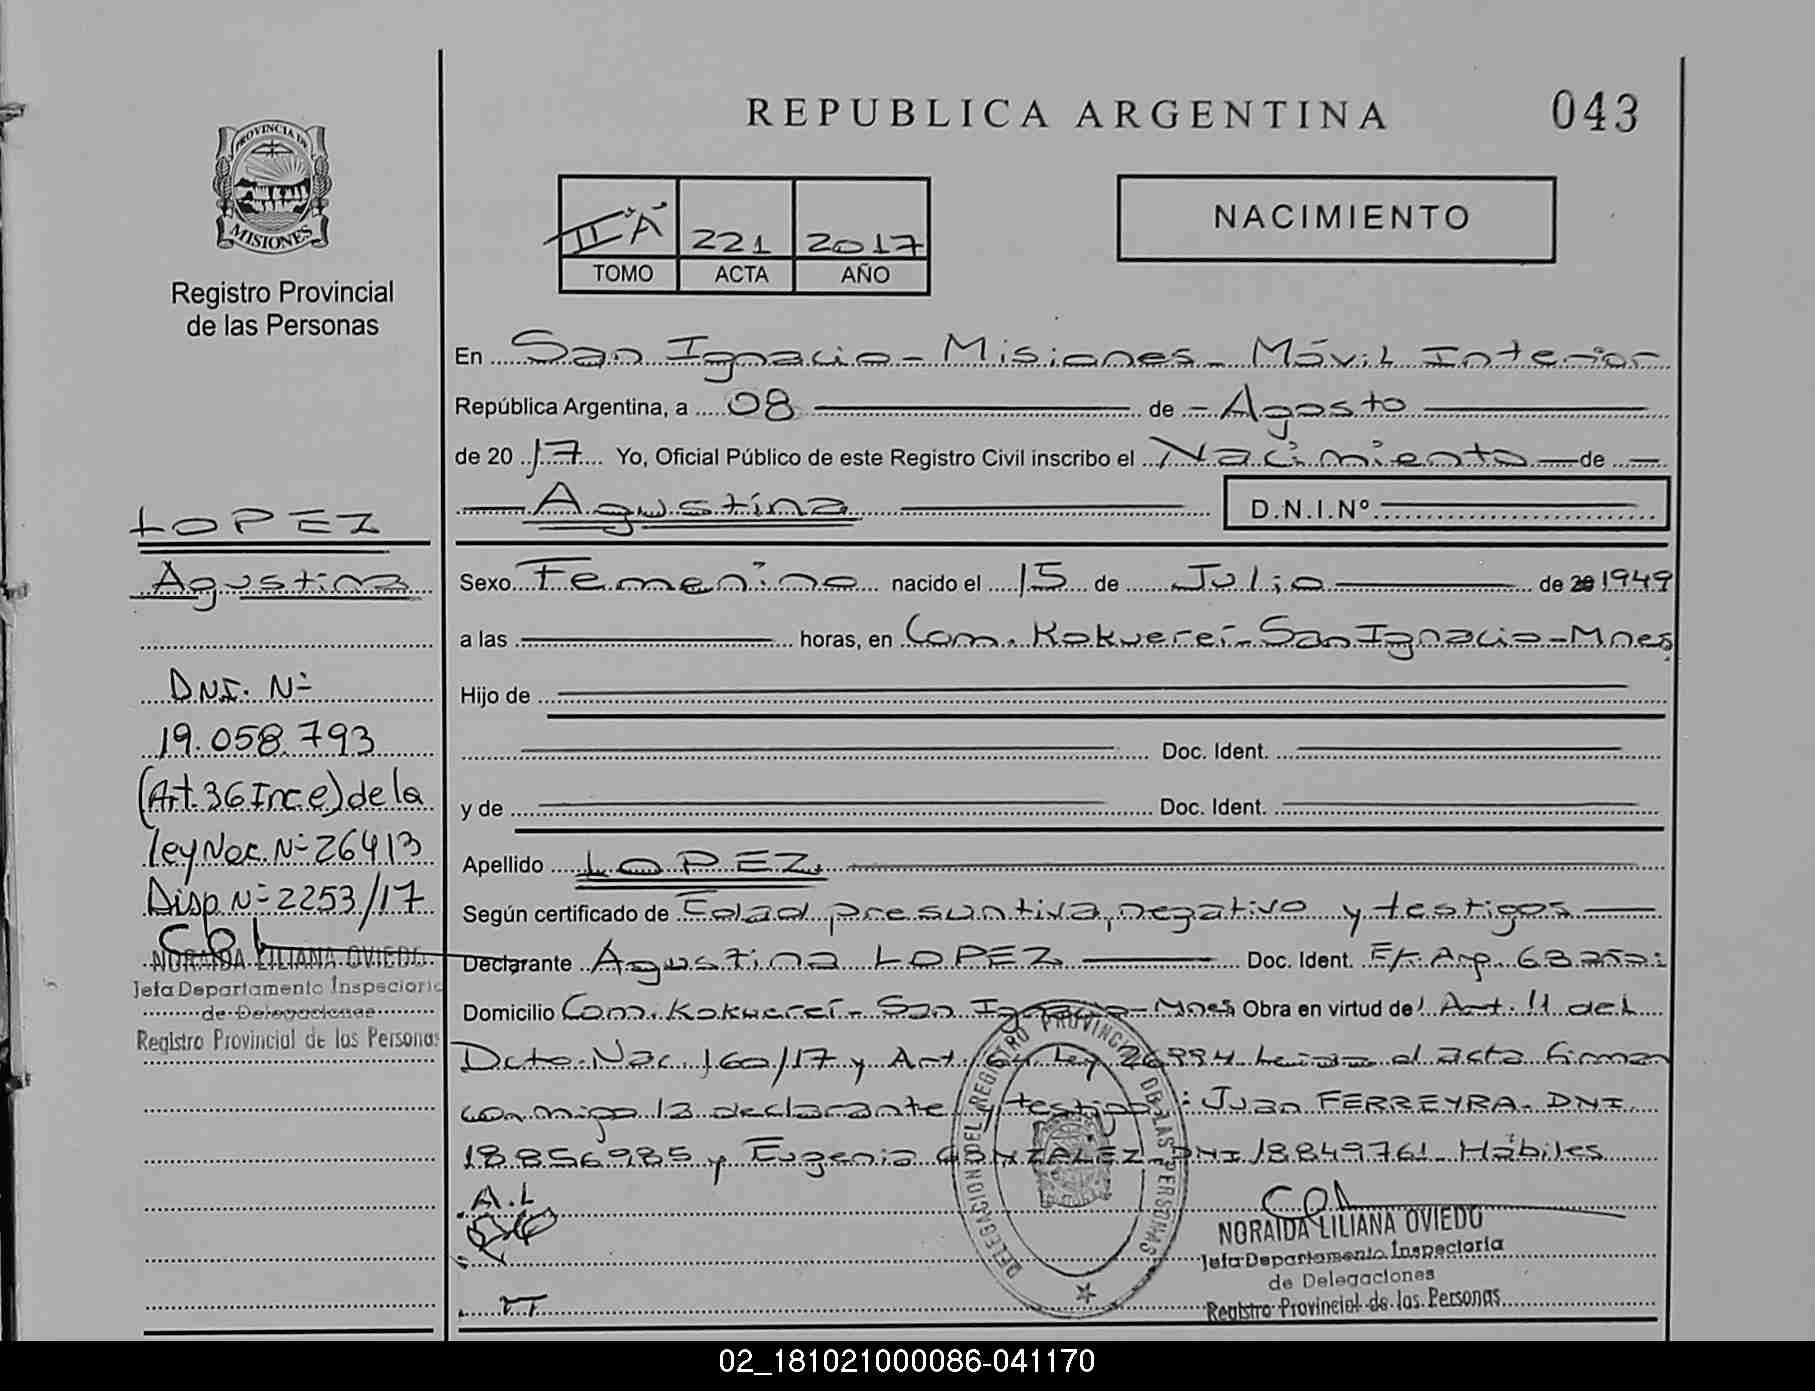 REPUBLICA ARGENTINA
043
PROVINCIA DE
MISIONES
Registro Provincial
de las Personas
II "A"
221
2017
TOMO
ACTA
AÑO
NACIMIENTO
En San Ignacio - Misiones - Móvil Interior
República Argentina, a 08 de Agosto
de 2017 Yo, Oficial Público de este Registro Civil inscribo el Nacimiento de
Agustina D.N.I.Nº
Sexo Femenino nacido el 15 de Julio de 20 1949
a las horas, en Com. Kokuereí - San Ignacio - Mnes
Hijo de
Doc. Ident.
y de Doc. Ident.
Apellido LOPEZ
Según certificado de Edad presuntiva, negativo y testigos
Declarante Agustina LOPEZ Doc. Ident. 
Domicilio Com. Kokuereí - San Ignacio - Mnes Obra en virtud del Art. 11 del
Dcto. Nac. 160/17 y Art. 64 Ley 26994 Leida el acta firman
conmigo la declarante y testigos: Juan FERREYRA DNI
18856985 y Eugenia GONZALEZ DNI 18849761 Hábiles
A.L
NORAIDA LILIANA OVIEDO
Jefa Departamento Inspectoría
de Delegaciones
Registro Provincial de las Personas
DELEGACION DEL REGISTRO PROVINCIAL DE LAS PERSONAS
LOPEZ
Agustina
DNI. Nº
19.058.793
(Art. 36 Inc e) de la
Ley Nac. Nº 26413
Disp Nº 2253/17
NORAIDA LILIANA OVIEDO
Jefa Departamento Inspectoría
de Delegaciones
Registro Provincial de las Personas
02_181021000086-041170